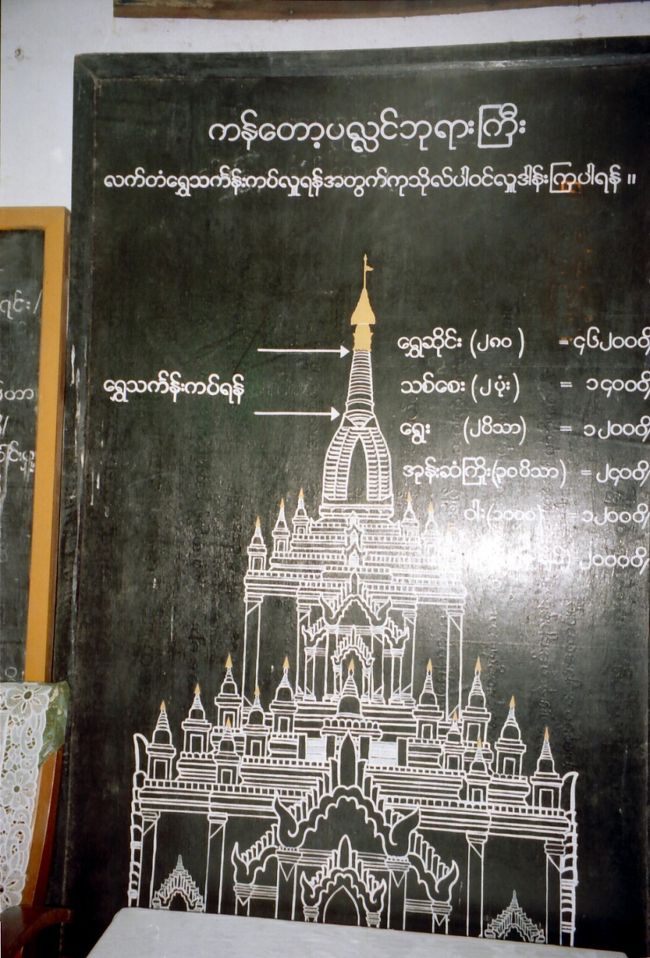 ကန်တော့ပလ္လင်ဘုရားကြီး
လက်တံရွှေသင်္ကန်းကပ်လှူရန်အတွက်ကုသိုလ်ပါဝင်လှူဒါန်းကြပါရန် ။
ရွှေဆိုင်း (၂၈၀) = ၄၆၂၀၀၀ိ/
သစ်စေး (၂ပုံး) = ၁၄၀၀၀ိ/
ရွှေသင်္ကန်းကပ်ရန်
ရွေး (၂ပိသာ) = ၁၂၀၀၀ိ/
အုန်းဆံကြိုး(၃၀ပိသာ) = ၂၄၀၀ိ/
ဝါး(၁၀၀၀) = ၁၂၀၀၀ိ/
၂၀၀၀၀ိ/